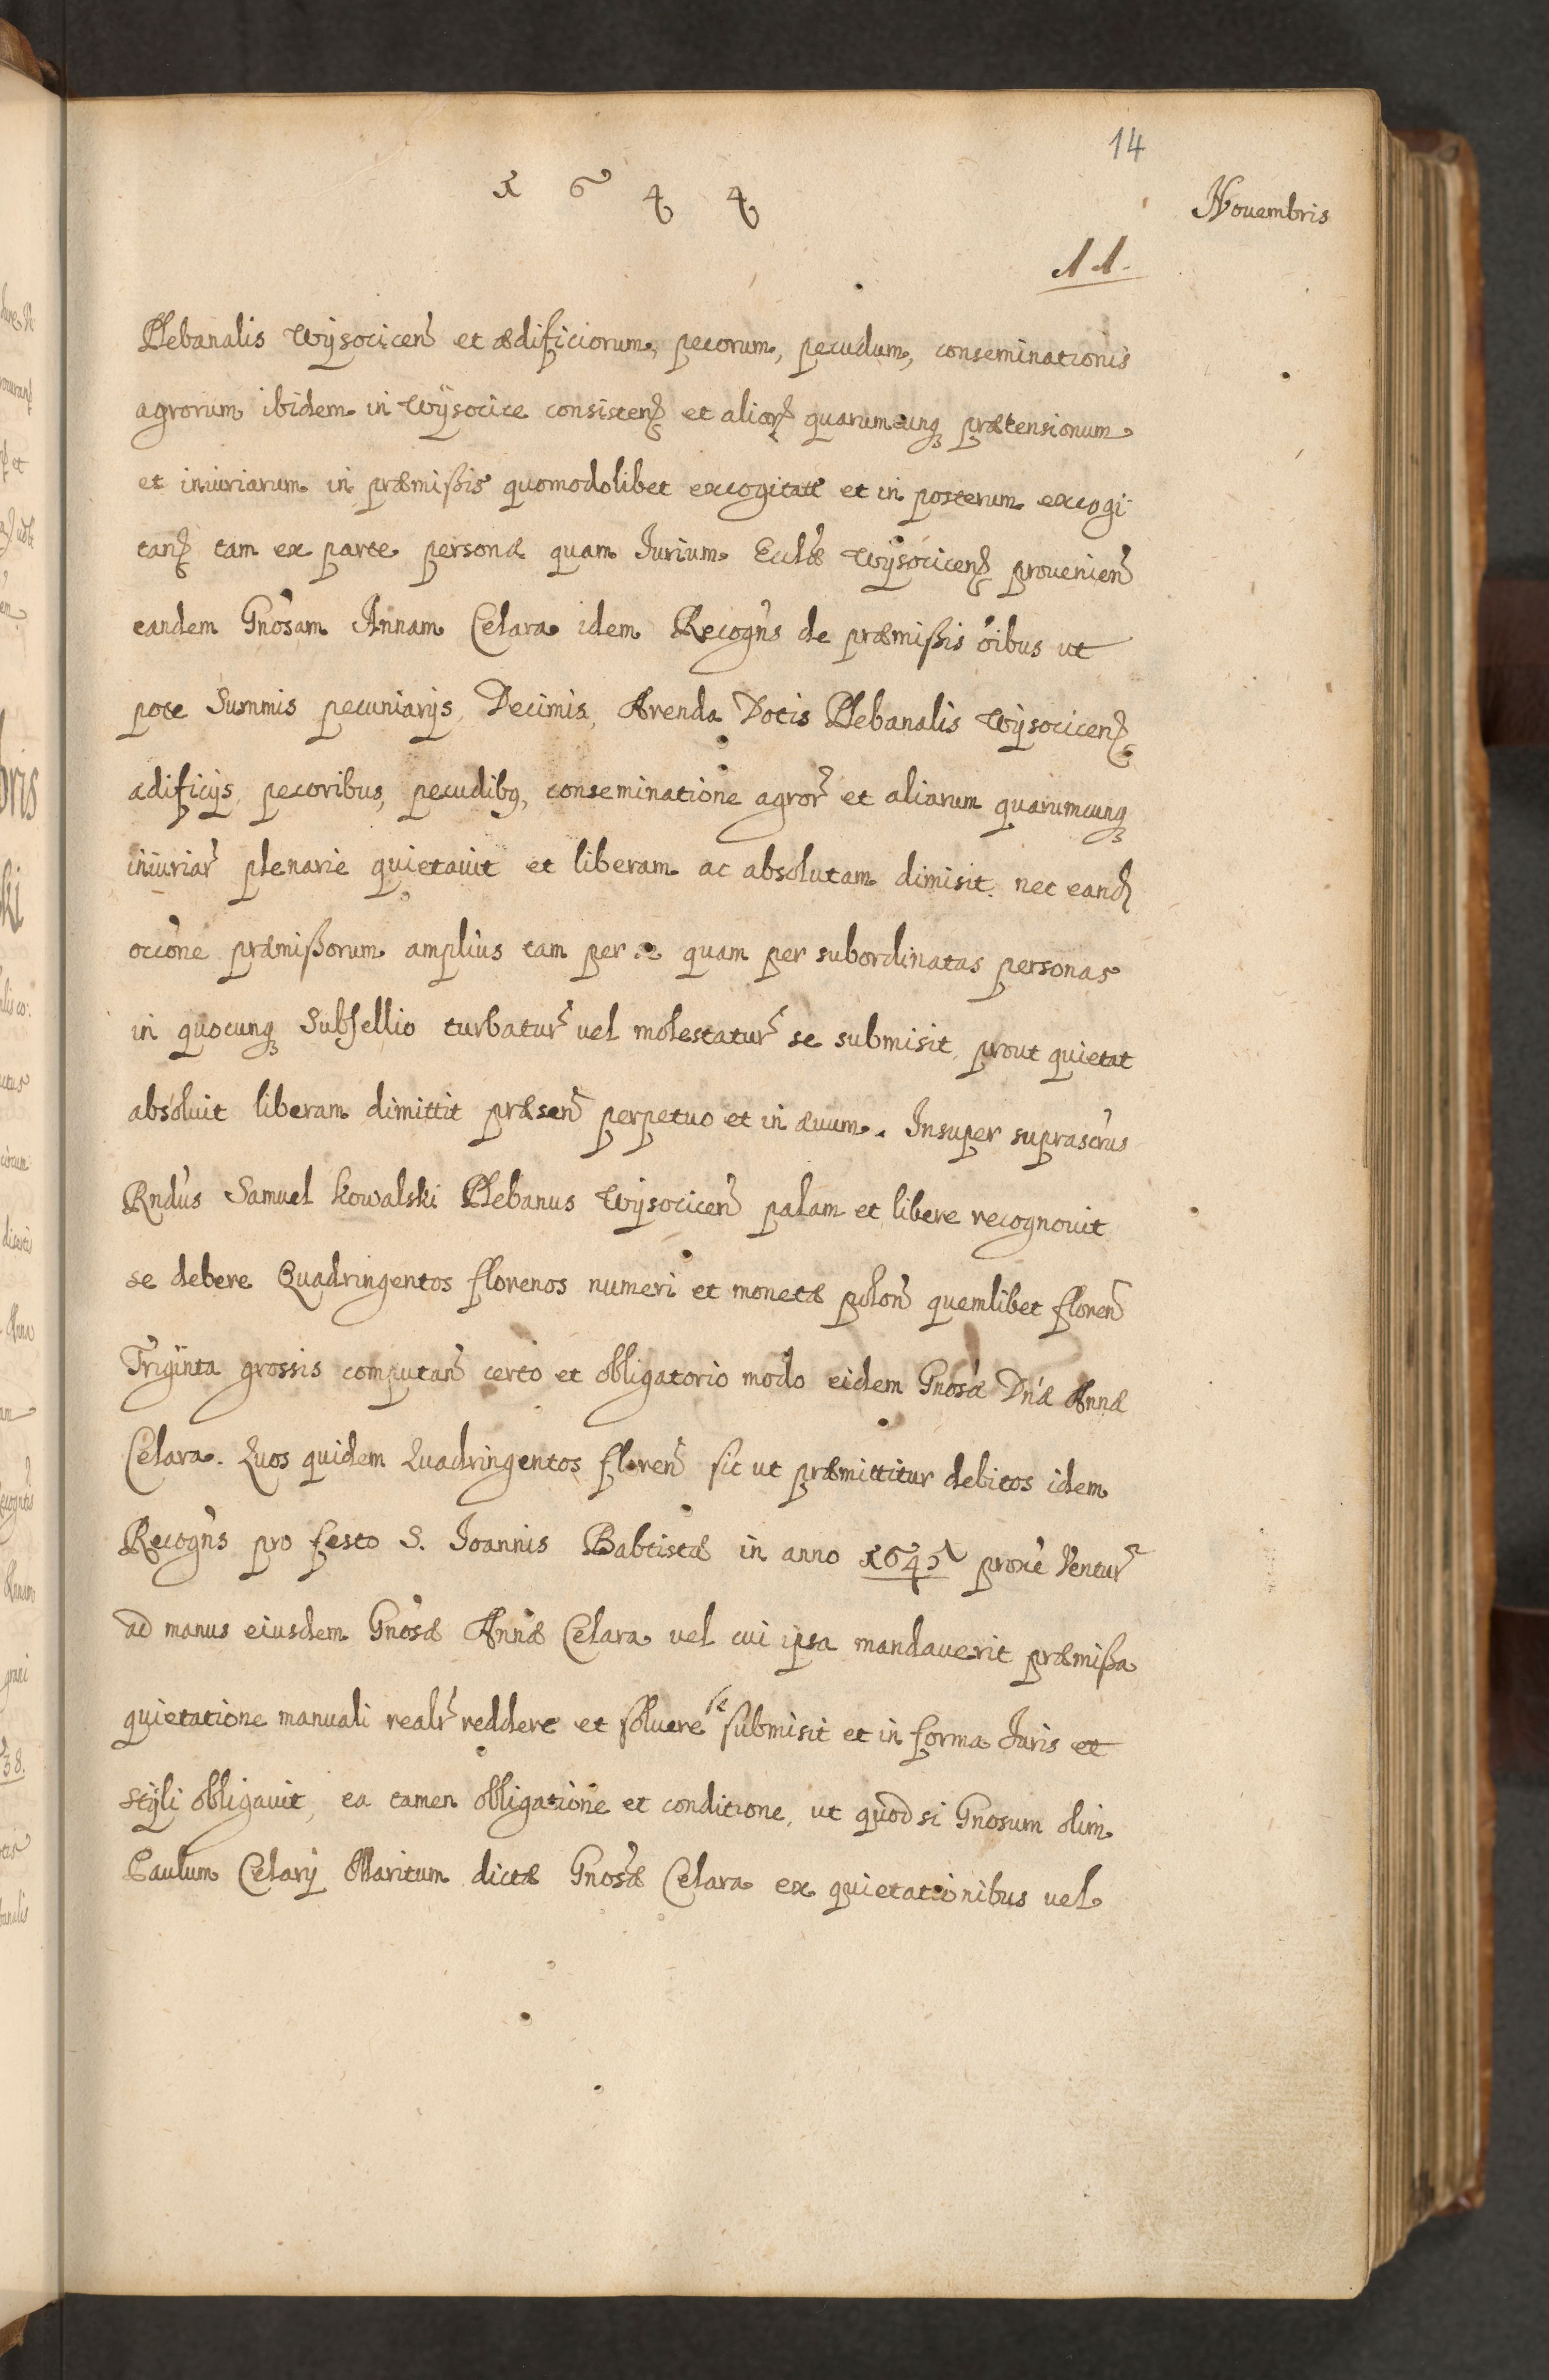 14
1644
Nouembris
11.
Plebanalis Wÿsocicen̄ et ædificiorum, pecorum, pecudum, conseminationis
agrorum ibidem in Wÿsocice consisten̄ et alior̄ quarumcunq prætensionum
et iniuriarum in præmißis quomodolibet excogitatt et in posterum excogi-
tan̄ tam ex parte personæ quam Iurium Ecclæ Wÿsocicen̄ prouenien̄
eandem Gnosam Annam Celara idem Recogn̄s de præmißis oībus ut
pote Summis pecuniarÿs, Decimis, Arenda Dotis Plebanalis Wÿsocicen̄
ædificÿs, pecoribus, pecudibq, conseminatione agror̄ et aliarum quarumcunq
iniuriar̄ plenarie quietauit et liberam ac absolutam dimisit. nec eand̄
occōne præmißorum amplius tam per se quam per subordinatas personas
in quocunq Subsellio turbatur̄ uel molestatur̄ se submisit, prout quietat
absoluit liberam dimittit præsen̄ perpetuo et in æuum. Insuper suprascrūs
Rndūs Samuel Kowalski Plebanus Wÿsocicen̄ palam et libere recognouit
se debere Quadringentos florenos numeri et monetæ polon̄ quemlibet floren̄
Triginta grossis computan̄ certo et obligatorio modo eidem Gnosæ Dnæ Annæ
Celara. Quos quidem Quadringentos floren̄ sic ut præmittitur debitos idem
Recogn̄s pro festo S. Ioannis Babtistæ in anno 1645 proxe Ventur̄
ad manus eiusdem Gnosæ Annæ Celara uel cui ipsa mandauerit præmißa
quietatione manuali realr̄ reddere et soluere se submisit et in forma Iuris et
stÿli obligauit, ea tamen obligatione et conditione, ut quod si Gnosum olim
Paulum Celarÿ Maritum dictæ Gnosæ Celara ex quietationibus uel